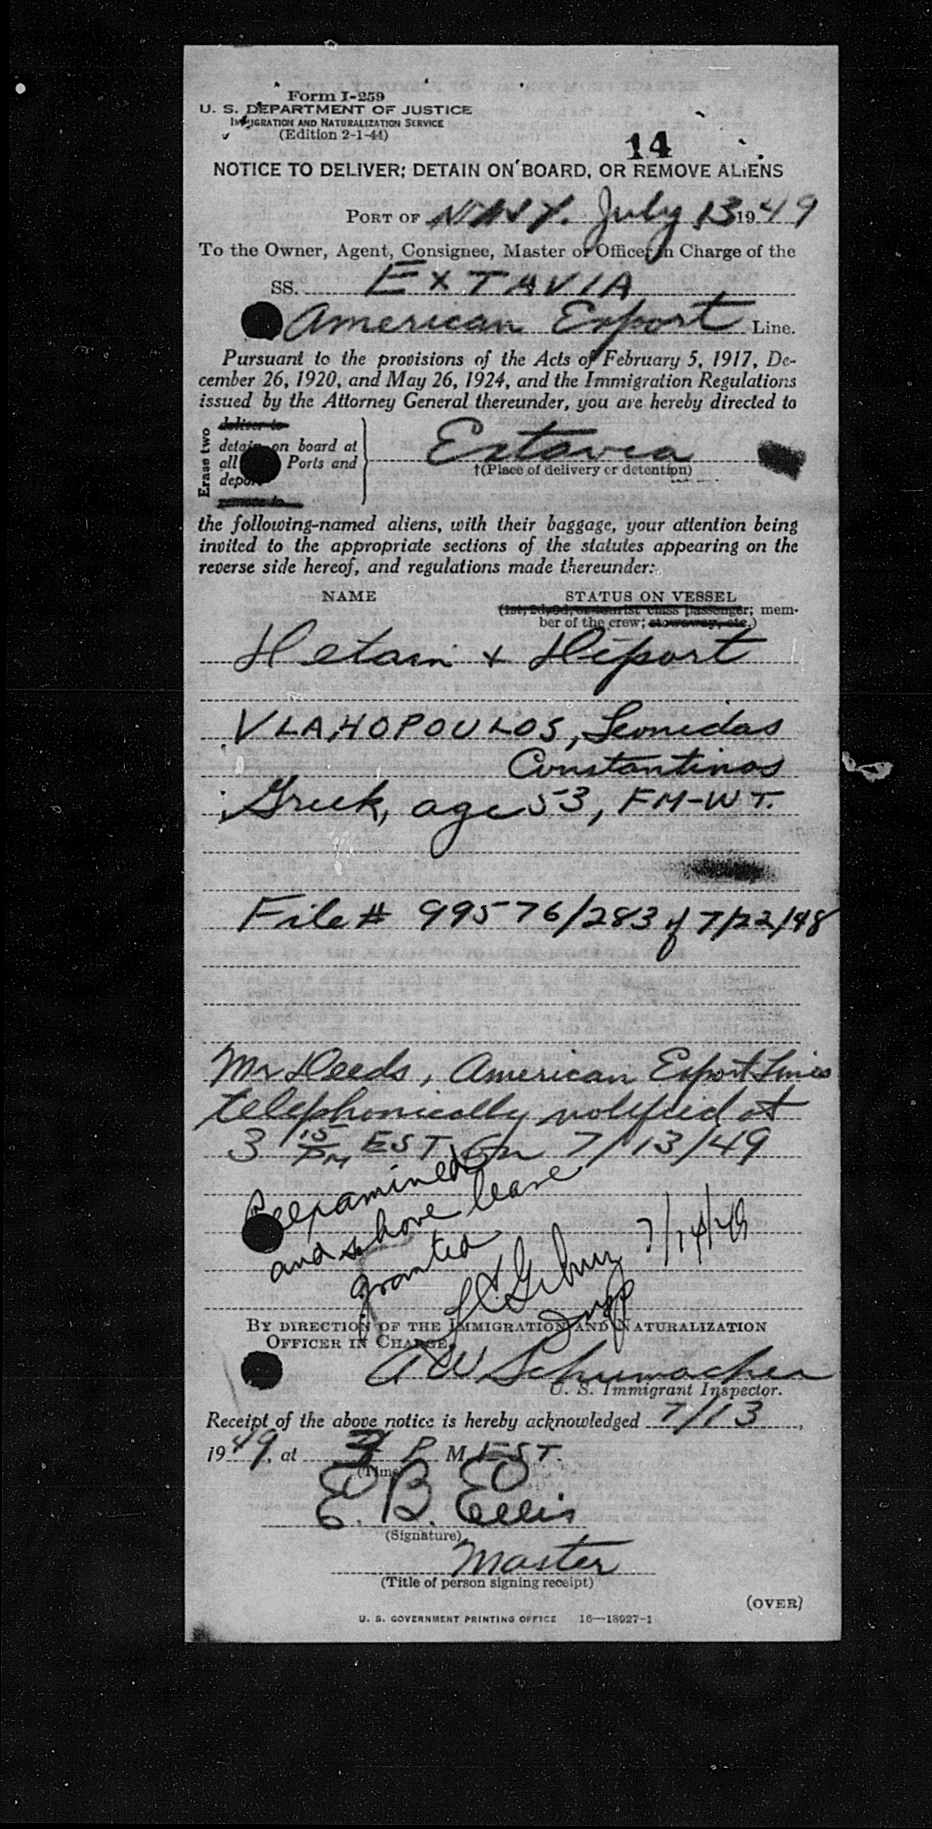 Form I-259
U. S. DEPARTMENT OF JUSTICE
IMMIGRATION AND NATURALIZATION SERVICE
(Edition 2-1-44)
14
NOTICE TO DELIVER; DETAIN ON BOARD, OR REMOVE ALIENS
PORT OF July 13 1949
To the Owner, Agent, Consignee, Master or Officer in Charge of the
SS. EXTAVIA
American Export Line.
Pursuant to the provisions of the Acts of February 5, 1917, De-
cember 26, 1920, and May 26, 1924, and the Immigration Regulations
issued by the Attorney General thereunder, you are hereby directed to
Erase two
deliver to
detain on board at
all Ports and
deport
remove to
Extavia
†(Place of delivery or detention)
the following-named aliens, with their baggage, your attention being
invited to the appropriate sections of the statutes appearing on the
reverse side hereof, and regulations made thereunder:
NAME STATUS ON VESSEL
(1st, 2d, 3d, or tourist class passenger; mem-
ber of the crew; stowaway, etc.)
Detain + Deport
VLAHOPOULOS, Leonidas
Constantinos
Greek, age 53, FM-WT.
File # 99576/283 of 7/22/48
Mr Deeds, American Export Lines
telephonically notified at
3 15 PM EST on 7/13/49
Reexamined
and shore leave
granted
7/14/49
Insp
BY DIRECTION OF THE IMMIGRATION AND NATURALIZATION
OFFICER IN CHARGE
A W Schumacher
U. S. Immigrant Inspector.
Receipt of the above notice is hereby acknowledged 7/13,
1949, at P M EST.
(Time)
E. B. Ellis
(Signature)
Master
(Title of person signing receipt)
(OVER)
U. S. GOVERNMENT PRINTING OFFICE 16—18927-1